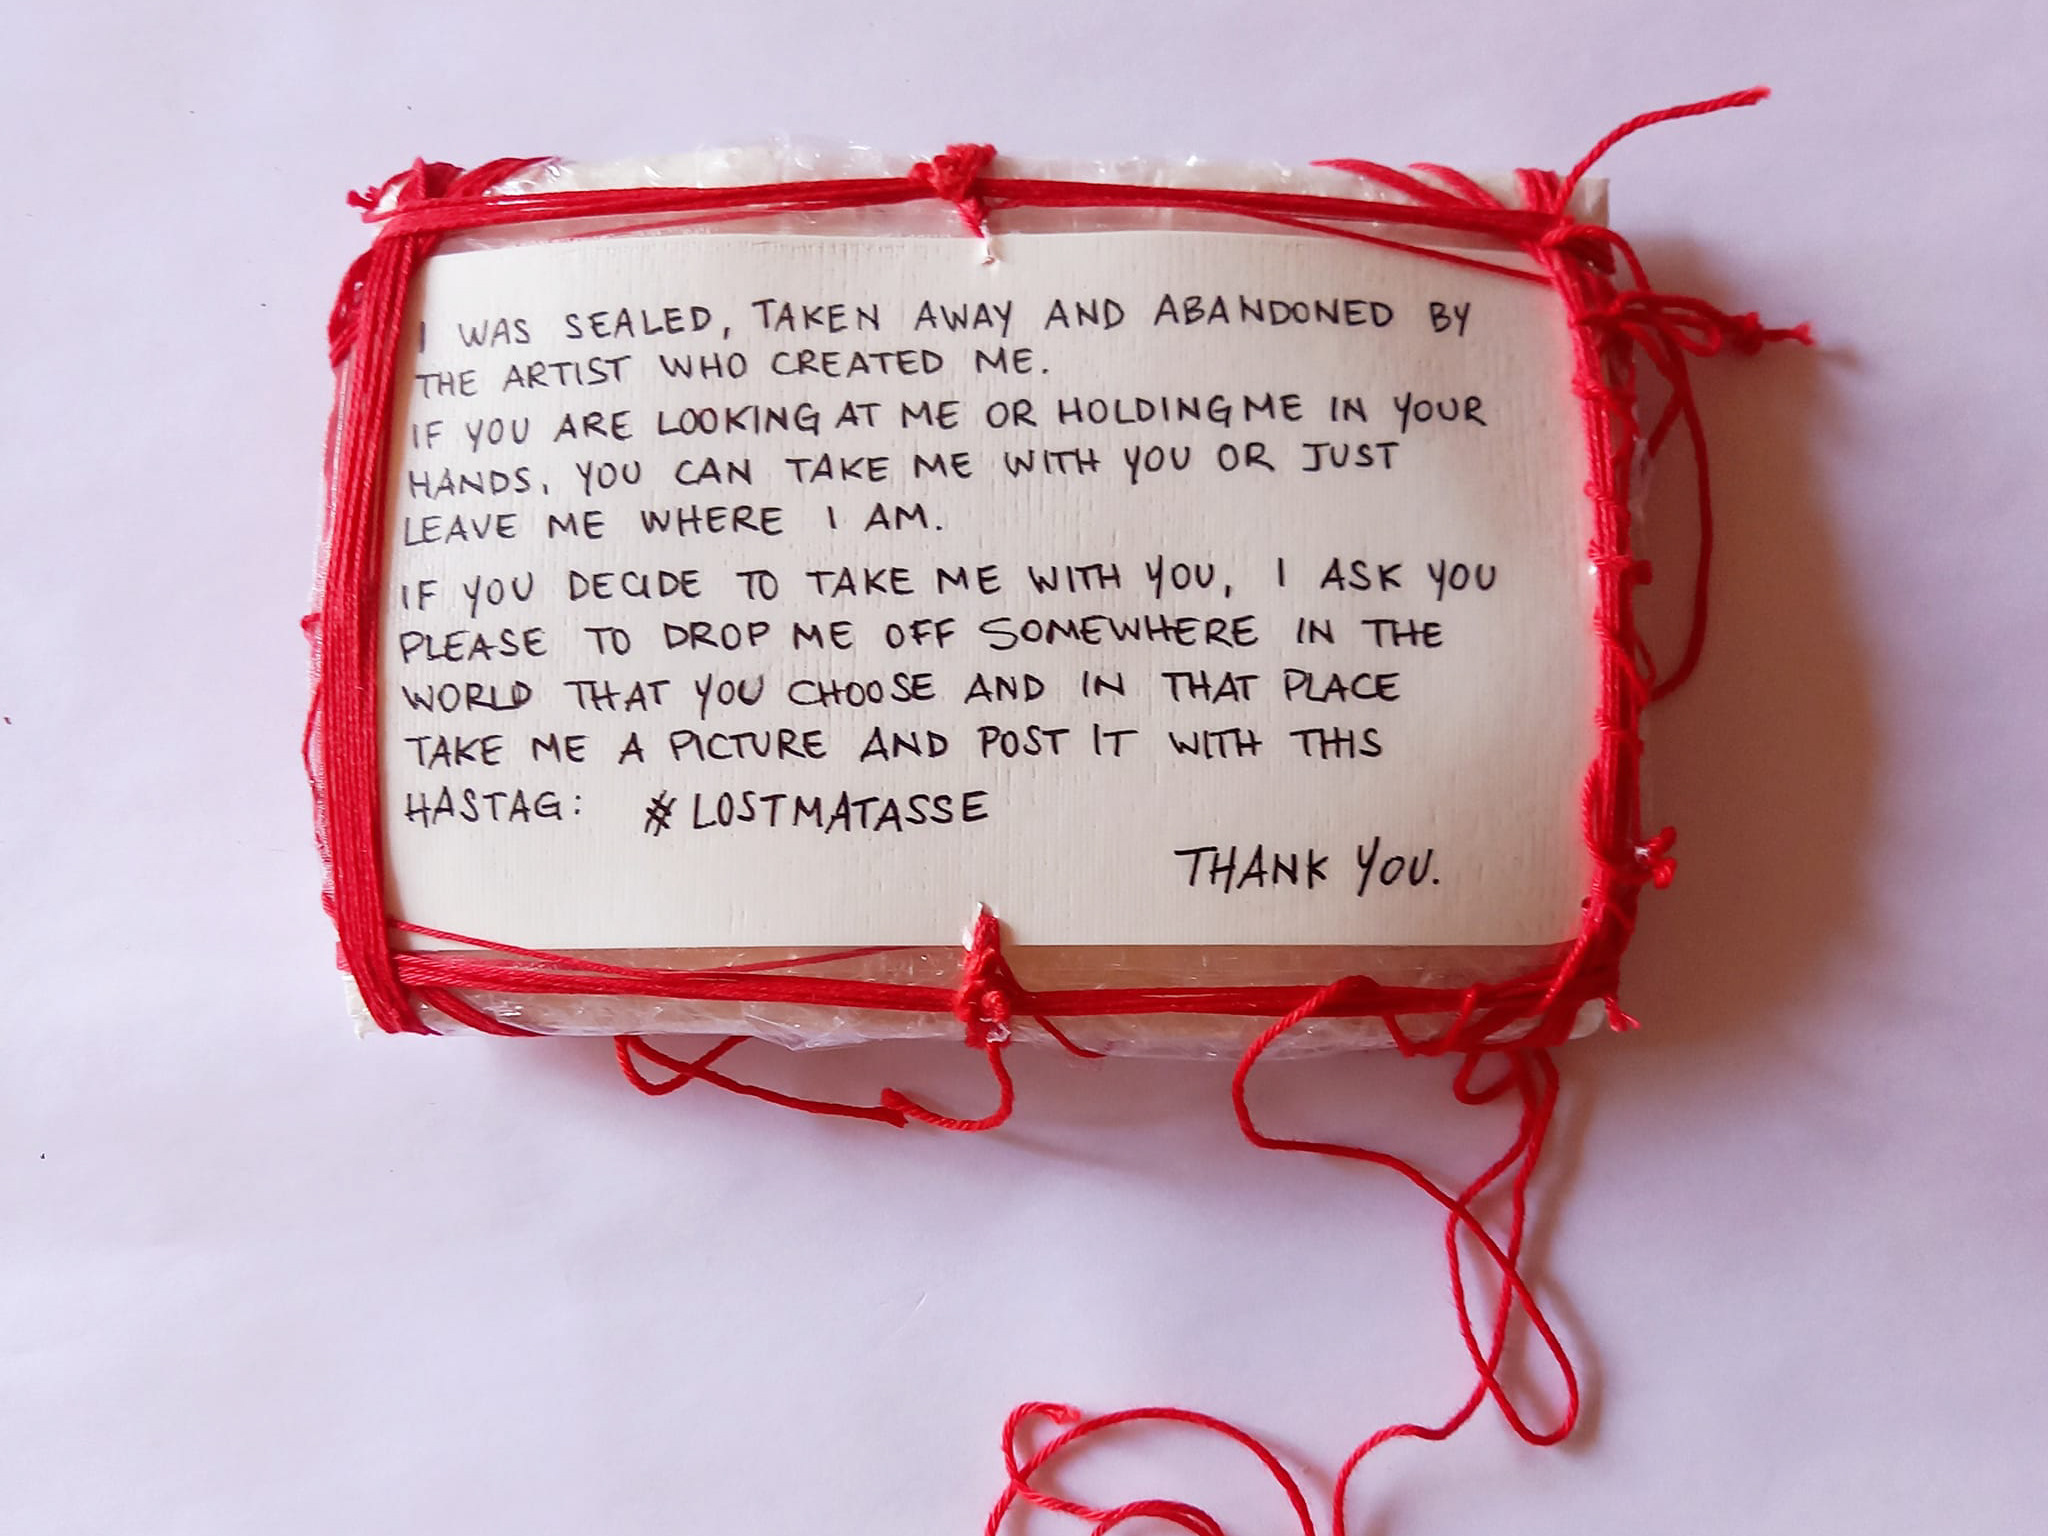 I WAS SEALED, TAKEN AWAY AND ABANDONED BY
THE ARTIST WHO CREATED ME.
IF YOU ARE LOOKING AT ME OR HOLDING ME IN YOUR
HANDS, YOU CAN TAKE ME WITH YOU OR JUST
LEAVE ME WHERE I AM.
IF YOU DECIDE TO TAKE ME WITH YOU, I ASK YOU
PLEASE TO DROP ME OFF SOMEWHERE IN THE
WORLD THAT YOU CHOOSE AND IN THAT PLACE
TAKE ME A PICTURE AND POST IT WITH THIS
HASTAG: #LOSTMATASSE
THANK YOU.